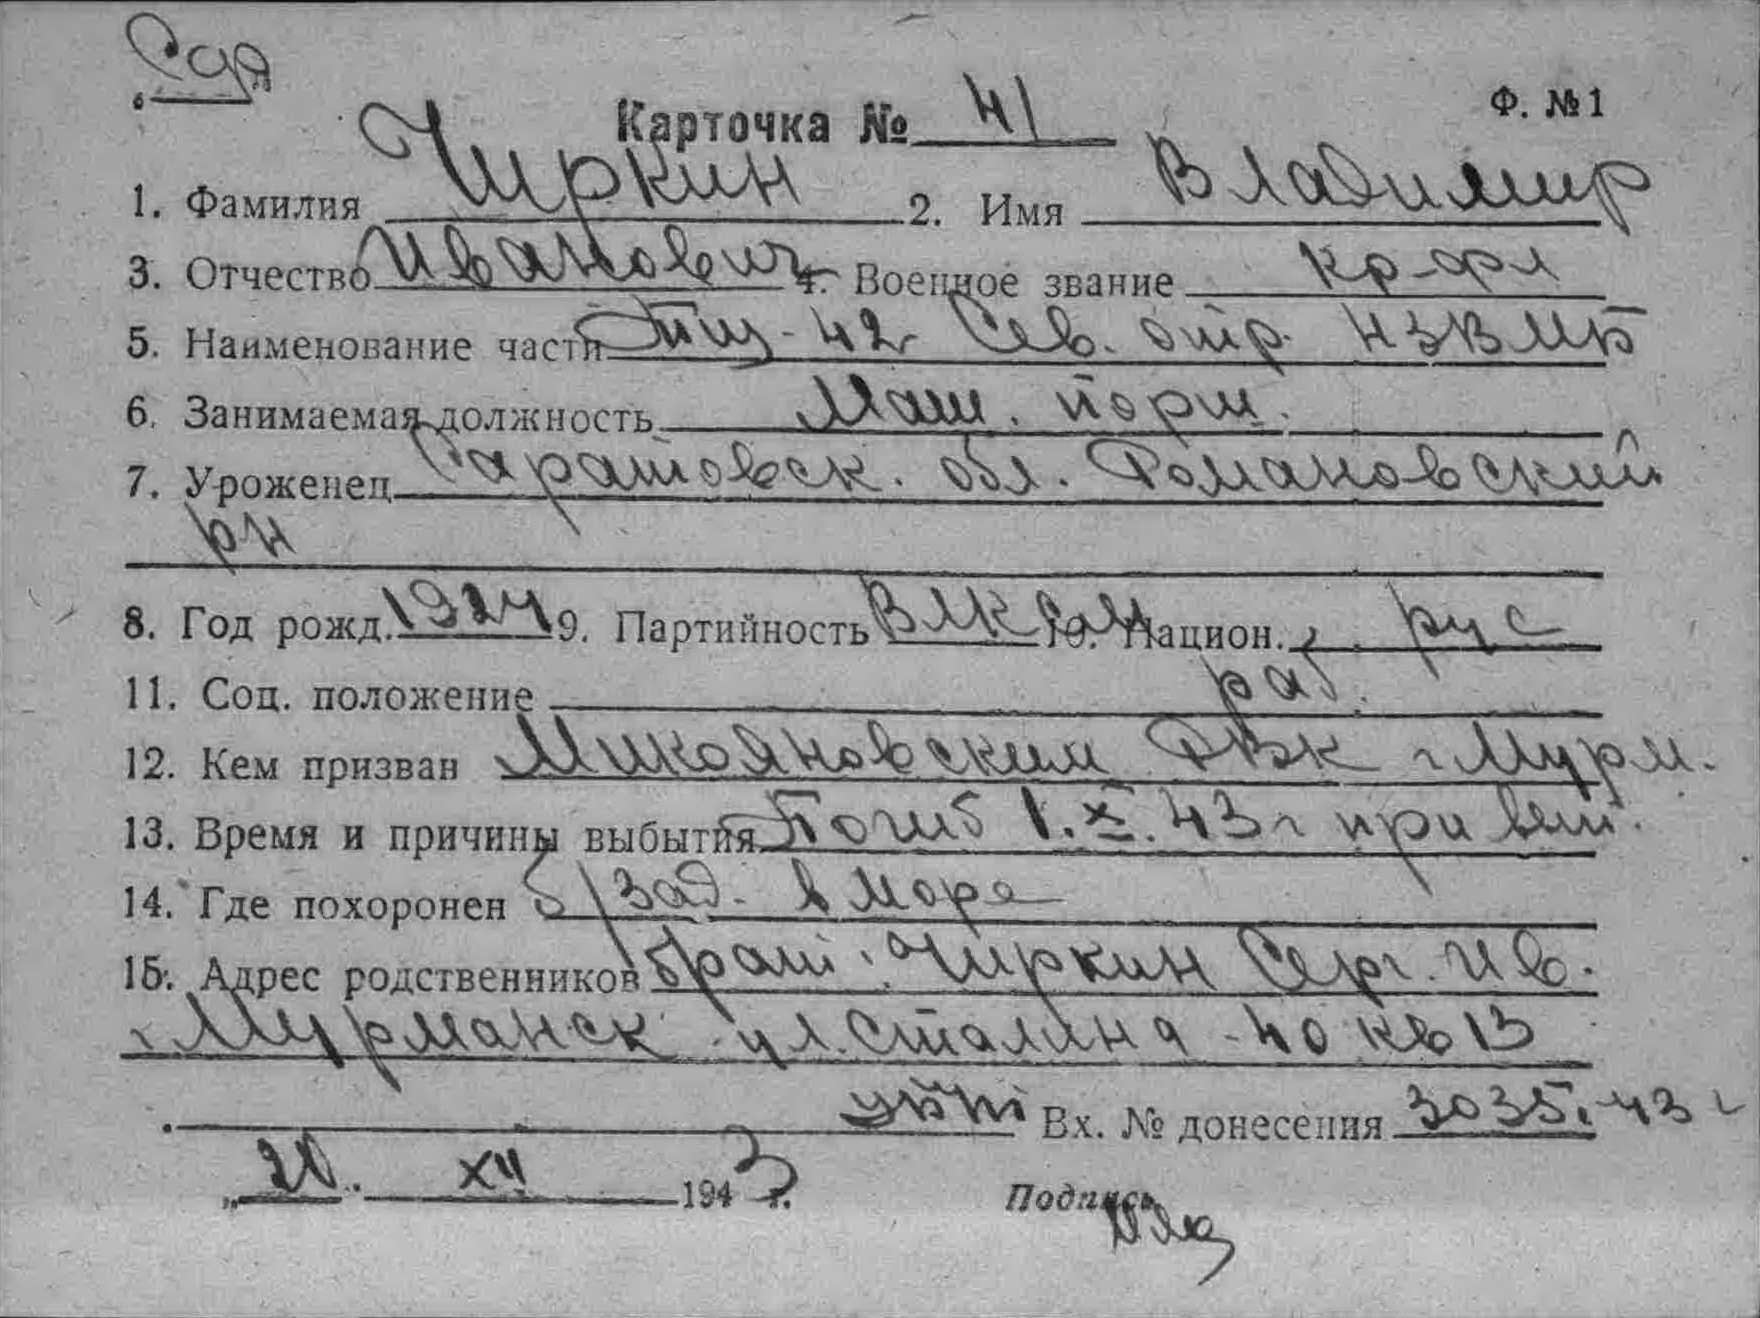 Карточка № 41 Ф. №1
1. Фамилия Чиркин 2. Имя Владимир
3. Отчество Иванович 4. Военное звание кр-фл
5. Наименование части Тщ-42 Сев. отр. НЗВМБ
6. Занимаемая должность Маш. торш.
7. Уроженец Саратовск. обл. Романовский
рн
8. Год рожд. 1924 9. Партийность ВЛКСМ 10. Национ. рус
11. Соц. положение раб.
12. Кем призван Микояновским РВК г. Мурм.
13. Время и причины выбытия Погиб 1.X.43г при вып.
14. Где похоронен б/зад. в море
15. Адрес родственников брат: Чиркин Серг. Ив.
г. Мурманск ул. Сталина - 40 кв 13
Вх. № донесения 3035. 43 г
„20. XII 1943 г.
Подпись